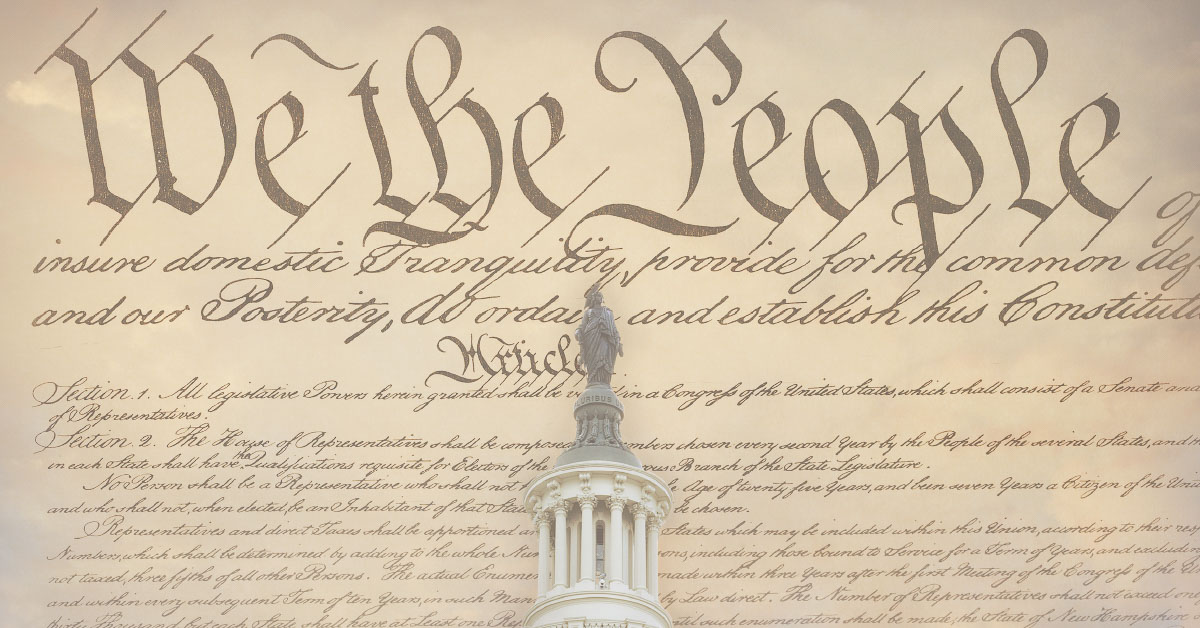 We the People
insure domestic Tranquility, provide for the common
and our Posterity, do ordain and establish this
Article
Section. 1. All legislative Powers herein granted shall be in a Congress of the United States, which shall consist of a Senate and
of Representatives.
Section. 2. The House of Representatives shall be composed chosen every second Year by the People of the several States, and
in each State shall have the Qualifications requisite for Electors of the Branch of the State Legislature.
No Person shall be a Representative who shall not Age of twenty five Years, and been seven Years a Citizen of the
and who shall not, when elected, be an Inhabitant of that be chosen.
Representatives and direct Taxes shall be apportioned States which may be included within this Union, according to their
Numbers, which shall be determined by adding to the whole including those bound to Service for a Term of Years, and
not taxed, three fifths of all other Persons. The actual made within three Years after the first Meeting of the Congress of the
and within every subsequent Term of ten Years, in such by Law direct. The Number of Representatives shall not exceed one
thirty Thousand, but each State shall have at Least one such enumeration shall be made, the State of New Hampshire
URIBUS